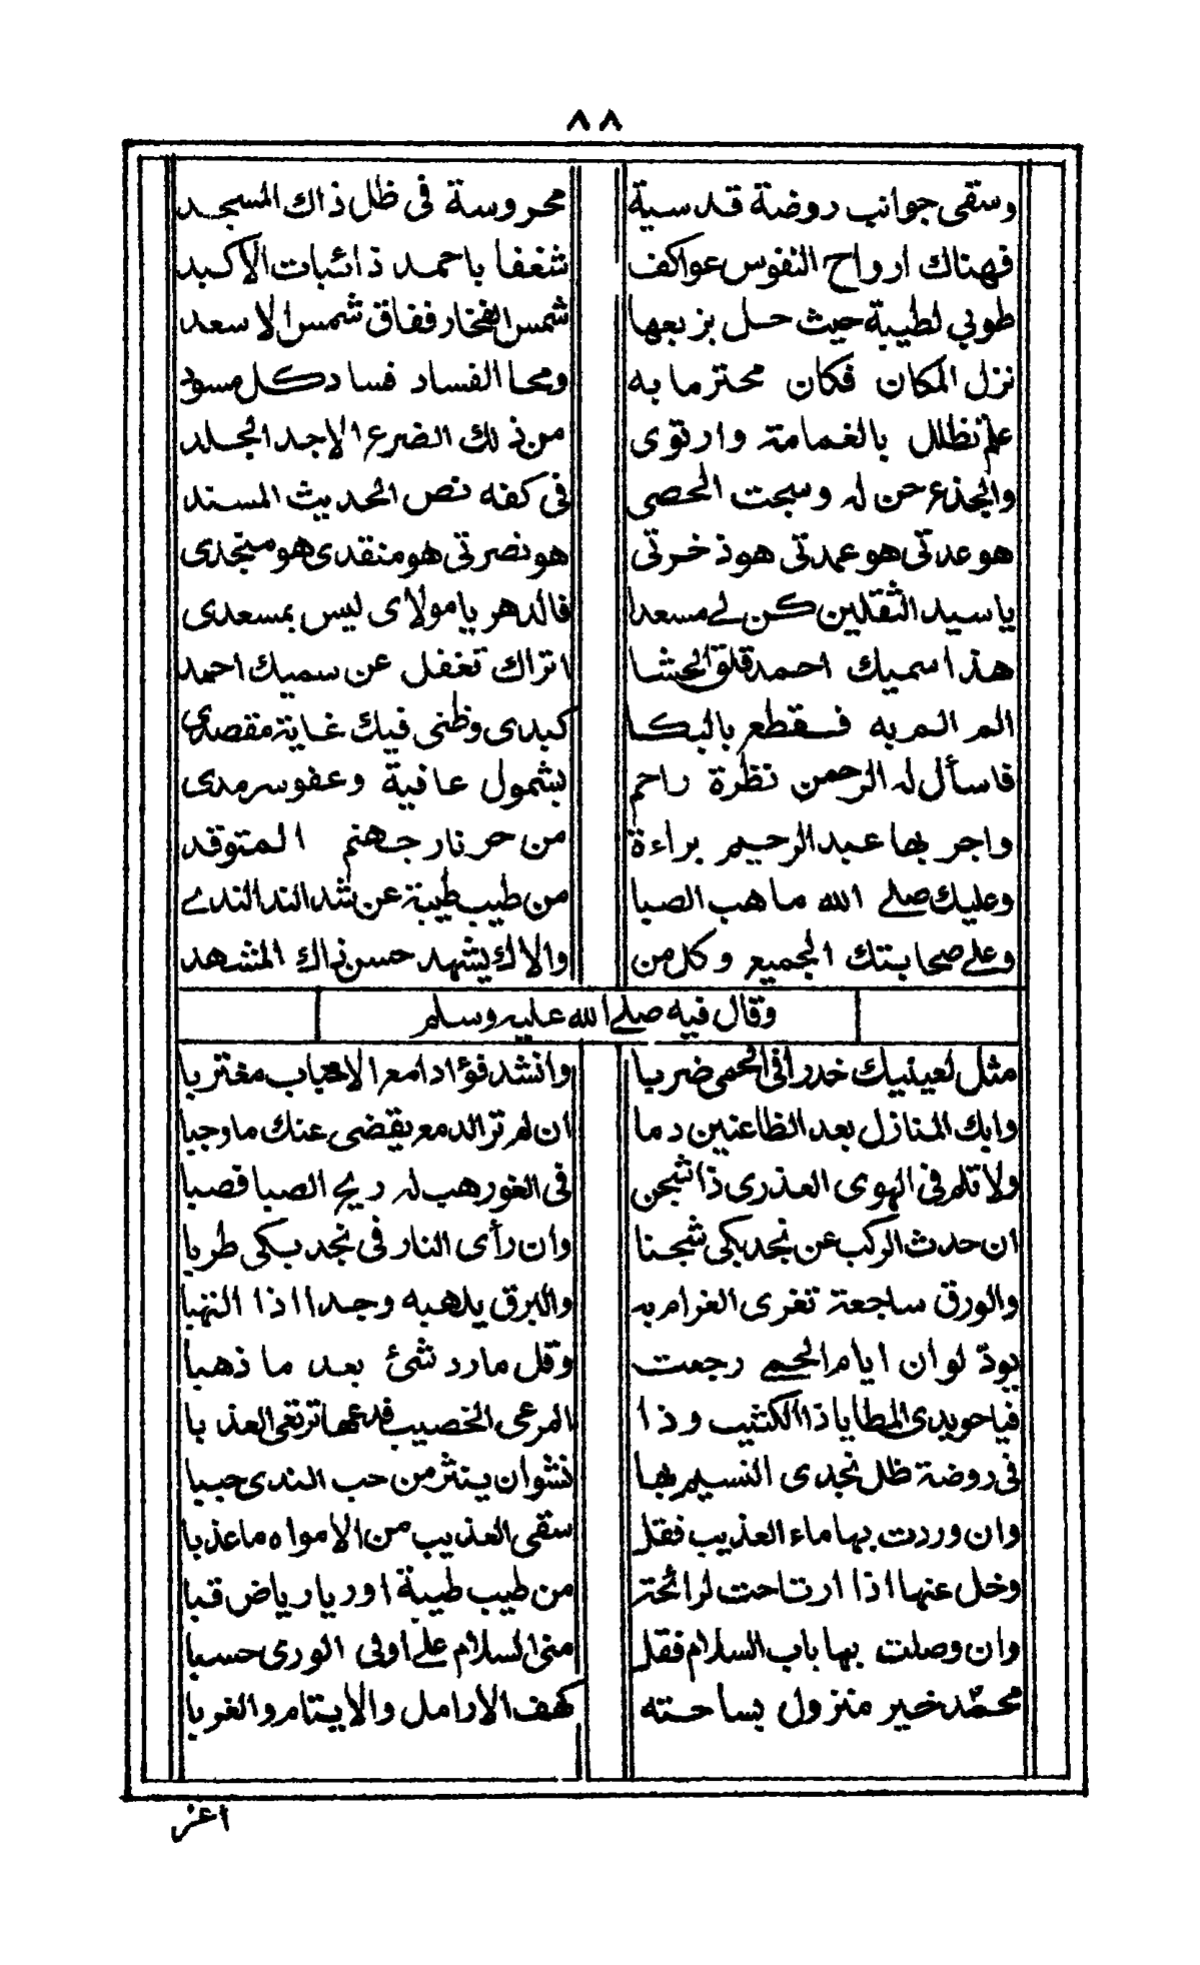 ٨٨
وسقى جوانب روضة قدسية محروسة فى ظل ذاك المسجد
فهناك ارواح النفوس عواكف شغفا باحمد ذائبات الاكبد
طوبى لطيبة حيث حل بزبعها شمس الفخار ففاق شمس الاسعد
نزل المكان فكان محترما به ومحا الفساد فساد كل مسود
علم تظلل بالغمامة وارتوى من ذلك الضرع الاجد الجلد
والجذع حن له وسبحت الحصى فى كفه نص الحديث المسند
هو عدتى هو عمدتى هو ذخرتى هو نصرتى هو منقدى هو منجدى
ياسيد الثقلين كن لى مسعدا فالدهر يا مولاى ليس بمسعدى
هذا سميك احمد قلق الحشا اتراك تغفل عن سميك احمد
الم الم به فقطع بالبكا كبدى وظنى فيك غاية مقصدى
فاسأل له الرحمن نظرة راحم بشمول عافية وعفو سرمدى
واجر بها عبد الرحيم براءة من حر نار جهنم المتوقد
وعليك صلى الله ما هب الصبا من طيب طيبة عن شذ الند الندى
وعلى صحابتك الجميع وكل من والاك يشهد حسن ذاك المشهد
وقال فيه صلى الله عليه وسلم
مثل لعينيك خدرا فى الحمى ضربا وانشد فؤادا مع الاحباب مغتربا
وابك المنازل بعد الظاعنين دما ان لم تر الدمع يقضى عنك ما وجبا
ولا تلم فى الهوى العذرى ذا شجن فى الغور هب له ريح الصبا فصبا
ان حدث الركب عن نجد بكى شجنا وان رأى النار فى نجد بكى طربا
والورق ساجعة تغرى الغرام به والبرق يلهبه وجدا اذا التهبا
يود لو ان ايام الحمى رجعت وقل ما رد شئ بعد ما ذهبا
فيا حويدى المطايا ذا الكثيب وذا المرعى الخصيب فدعها ترتعى العذبا
فى روضة ظل نجدى النسيم بها نشوان ينثر من حب الندى حببا
وان وردت بها ماء العذيب فقل سقى العذيب من الامواه ما عذبا
وخل عنها اذا ارتاحت لرائحة من طيب طيبة او ريا رياض قبا
وان وصلت بها باب السلام فقل منى السلام على اوفى الورى حسبا
محمد خير منزول بساحته كهف الارامل والايتام والغربا
اعز